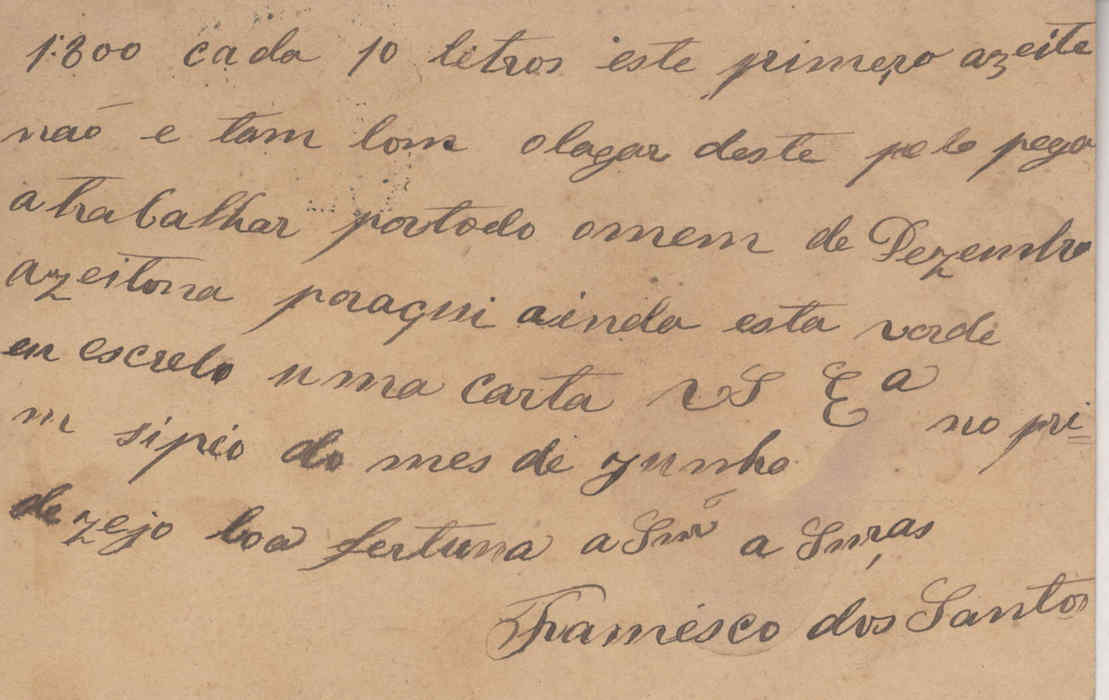 1:300 cada 10 letros este primero azeite
naó e tam bom olagar deste pelo pega
atrabalhar portodo omem de Dezembro
azeitona poraqui ainda esta verde
eu escrebo uma carta VS Eª no pri=
m sipio do mes de zunho
dezejo boa fertuna a Snrº a Snrªas
Framcesco dos Santos